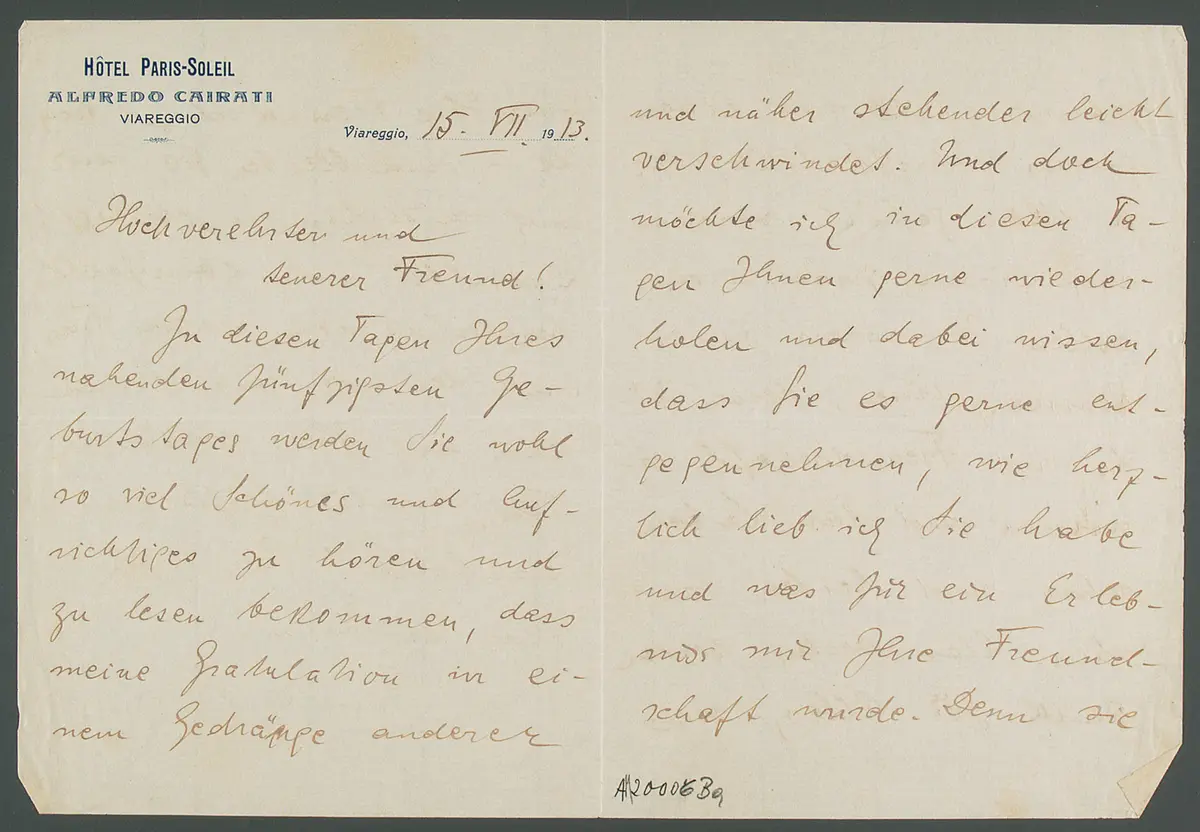 HÔTEL PARIS-SOLEIL
ALFREDO CAIRATI
VIAREGGIO
Viareggio, 15. VII. 1913.
Hochverehrter und
teuerer Freund!
In diesen Tagen Ihres
nahenden fünfzigsten Ge-
burtstages werden Sie wohl
so viel Schönes und Auf-
richtiges zu hören und
zu lesen bekommen, dass
meine Gratulation in ei-
nem Gedränge anderer
und näher stehender leicht
verschwindet. Und doch
möchte ich in diesen Ta-
gen Ihnen gerne wieder-
holen und dabei wissen,
dass Sie es gerne ent-
gegennehmen, wie herz-
lich lieb ich Sie habe
und was für ein Erleb-
nis mir Ihre Freund-
schaft wurde. Denn sie